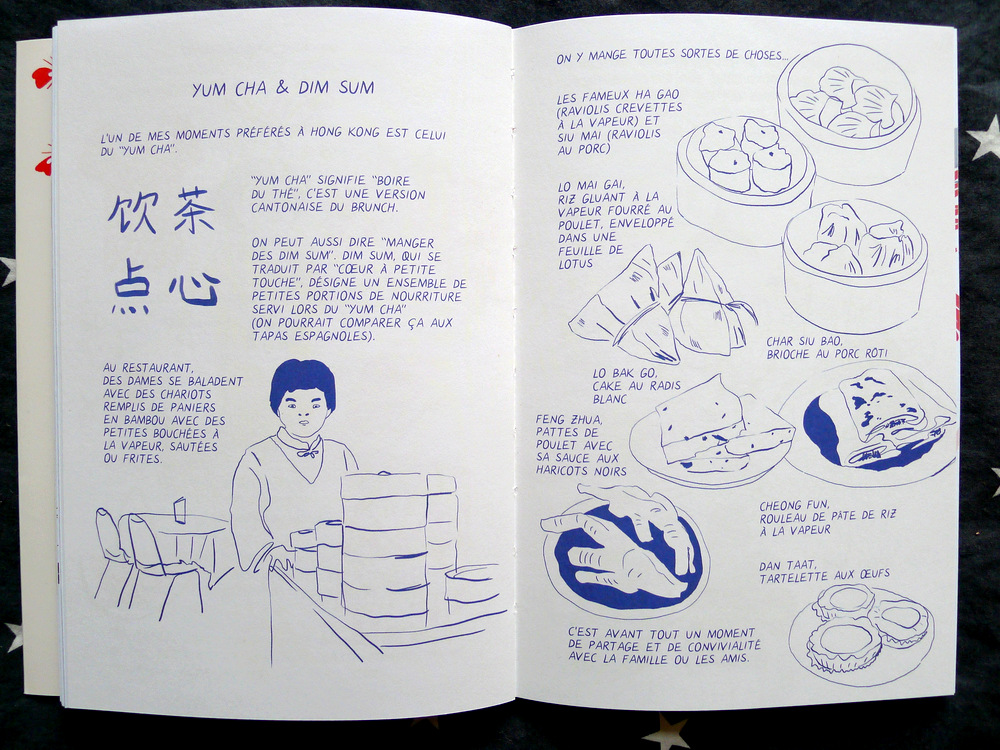 YUM CHA & DIM SUM
L'UN DE MES MOMENTS PRÉFÉRÉS À HONG KONG EST CELUI
DU "YUM CHA".
饮茶
点心
"YUM CHA" SIGNIFIE "BOIRE
DU THÉ", C'EST UNE VERSION
CANTONAISE DU BRUNCH.
ON PEUT AUSSI DIRE "MANGER
DES DIM SUM". DIM SUM, QUI SE
TRADUIT PAR "CŒUR À PETITE
TOUCHE", DÉSIGNE UN ENSEMBLE DE
PETITES PORTIONS DE NOURRITURE
SERVI LORS DU "YUM CHA"
(ON POURRAIT COMPARER ÇA AUX
TAPAS ESPAGNOLES).
AU RESTAURANT,
DES DAMES SE BALADENT
AVEC DES CHARIOTS
REMPLIS DE PANIERS
EN BAMBOU AVEC DES
PETITES BOUCHÉES À
LA VAPEUR, SAUTÉES
OU FRITES.
ON Y MANGE TOUTES SORTES DE CHOSES...
LES FAMEUX HA GAO
(RAVIOLIS CREVETTES
À LA VAPEUR) ET
SIU MAI (RAVIOLIS
AU PORC)
LO MAI GAI,
RIZ GLUANT À LA
VAPEUR FOURRÉ AU
POULET, ENVELOPPÉ
DANS UNE
FEUILLE DE
LOTUS
CHAR SIU BAO,
BRIOCHE AU PORC RÔTI
LO BAK GO,
CAKE AU RADIS
BLANC
FENG ZHUA,
PATTES DE
POULET AVEC
SA SAUCE AUX
HARICOTS NOIRS
CHEONG FUN,
ROULEAU DE PÂTE DE RIZ
À LA VAPEUR
DAN TAAT,
TARTELETTE AUX ŒUFS
C'EST AVANT TOUT UN MOMENT
DE PARTAGE ET DE CONVIVIALITÉ
AVEC LA FAMILLE OU LES AMIS.